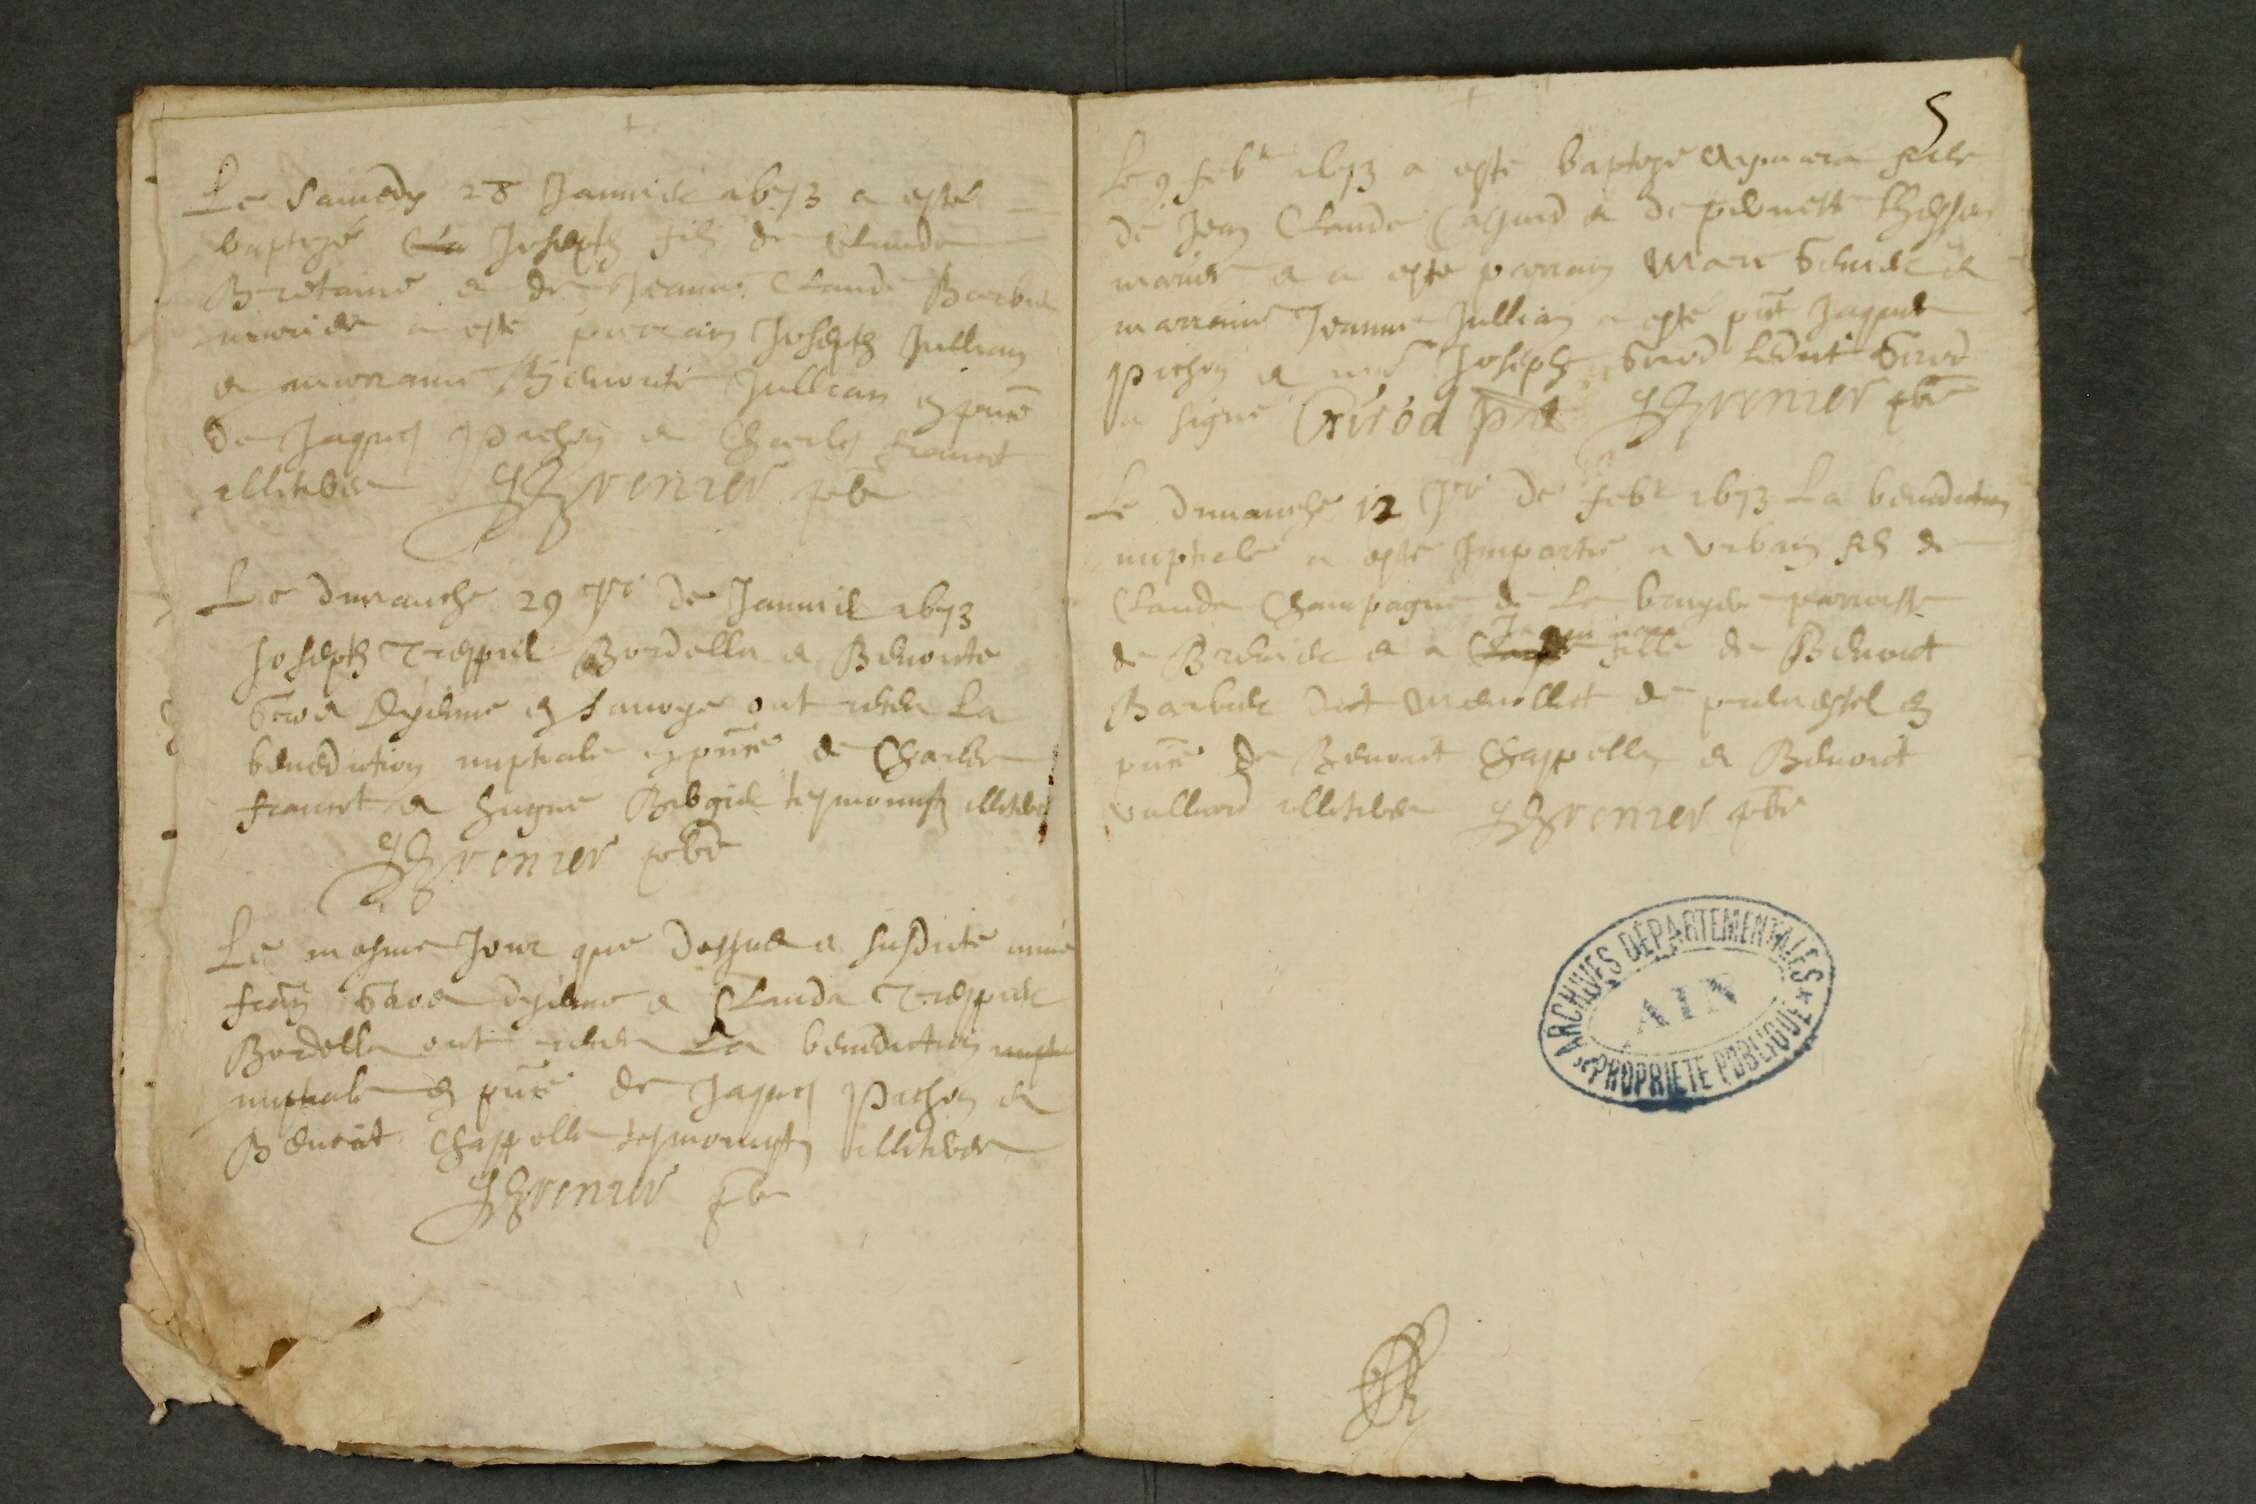 Le samedy 28 Janvier 1673 a esté
baptizé Joseph fils de Claude
Bretaine et de Jeanne Claude Barbier
mariés a esté parrain Joseph Jullian
et marraine Benoite Jullian en pnce
de Jaques Pachon et Charles Francot
illiterés JGrenier pbre
Le dimanche 29 Jor de Janvier 1673
Joseph Bordella et Benoite
en Savoye ont receu la
benediction nuptiale en pnce de Charles
francot et hugue tesmoings illiterés
JGrenier pbre
Le mesme Jour que dessus et susdite année
Girod et Clauda
Bordella ont receu La benediction
nuptiale en pnce de Jaques Pachon et
Benoit Chappella tesmoings illiterés
JGrenier pbre
5
Le 9 febr 1673 a esté baptizé fille
de Jean Claude et de pernette
mariés et a esté parrain Marc et
marraine Jeanne Jullian a esté pnt Jaques
Pachon et me Joseph Girod Ledit Girod
a signé Girod pnt JGrenier pbre
Le dimanche 12 Jor de febr 1673 La benediction
nuptiale a esté Impartie a Urbain fils de
Claude Champagne de parroisse
de et a fille de Benoit
Barbier dit de en
pnce de Benoit Chappella et Benoit
vulliard illiterés JGrenier pbre
ARCHIVES DÉPARTEMENTALES
AIN
PROPRIETE PUBLIQUE